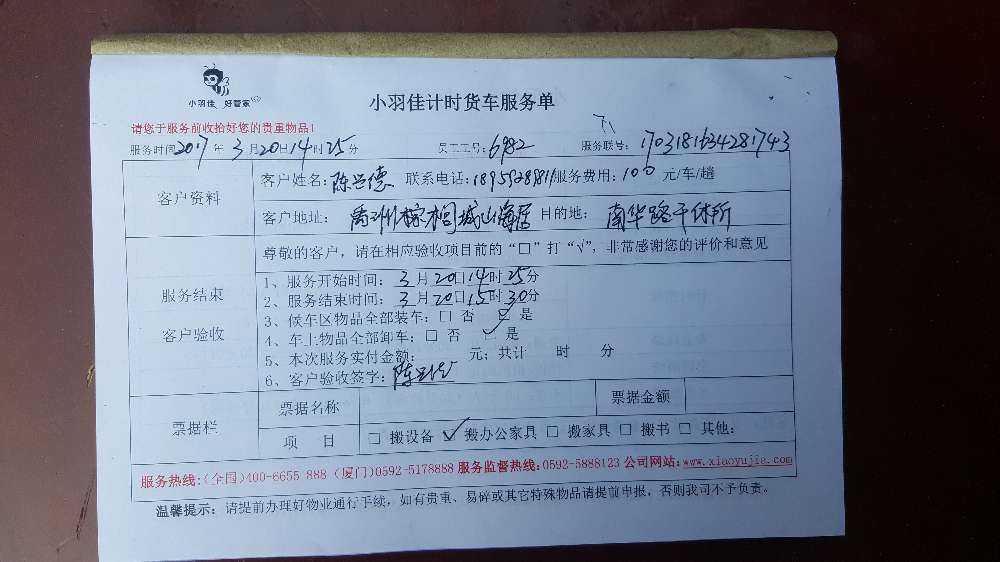 小羽佳 好管家
小羽佳计时货车服务单
请您于服务前收拾好您的贵重物品!
服务时间2017年3月20日14时25分 员工工号:6982 服务联号:1703181634281743
客户资料
客户姓名:陈兴德 联系电话:18959285811服务费用:100元/车/趟
客户地址:禹州棕榈城山海居 目的地:南华路干休所
尊敬的客户,请在相应验收项目前的“□”打“√”,非常感谢您的评价和意见
服务结束
客户验收
1、服务开始时间:3月20日14时25分
2、服务结束时间:3月20日15时30分
3、候车区物品全部装车:□ 否 □ 是
4、车上物品全部卸车:□ 否 □ 是
5、本次服务实付金额: 元;共计 时 分
6、客户验收签字:
票据栏
票据名称 票据金额
项 目 □ 搬设备 ☑ 搬办公家具 □ 搬家具 □ 搬书 □ 其他:
服务热线:(全国)400-6655 888 (厦门)0592-5178888 服务监督热线:0592-5888123 公司网站:www.xiaoyujia.com
温馨提示:请提前办理好物业通行手续,如有贵重、易碎或其它特殊物品请提前申报,否则我司不予负责。